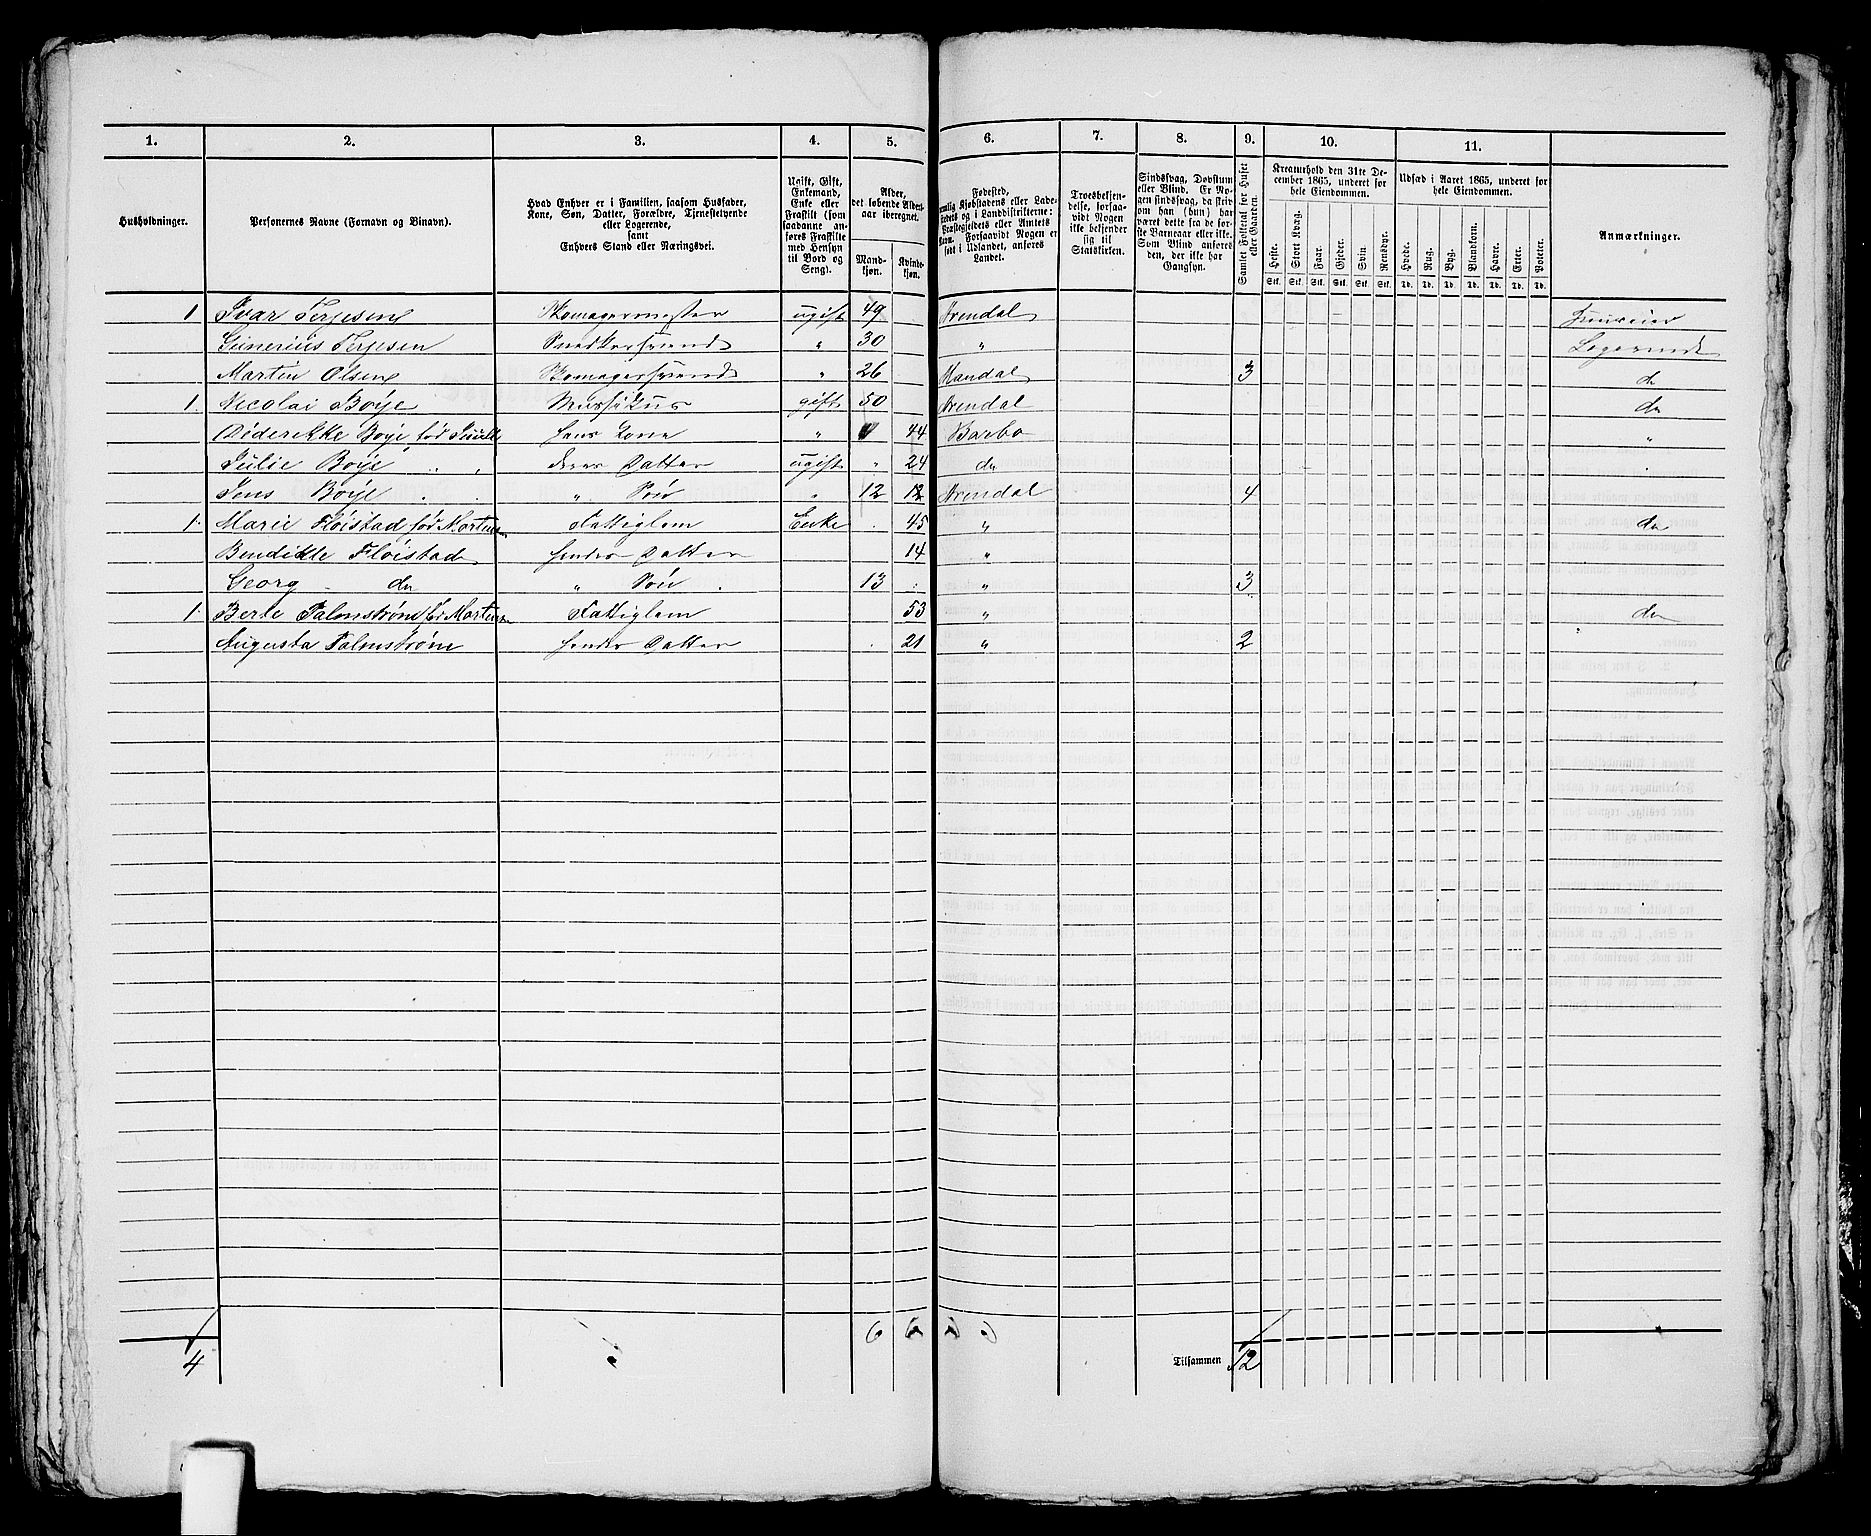 1. 2. 3. 4. 5. 6. 7. 8. 9. 10. 11.
Husholdninger.
Personernes Navne (Fornavn og Binavn).
Hvad Enhver er i Familien, saasom Husfader,
Kone, Søn, Datter, Forældre, Tjenestetyende
eller Logerende,
samt
Enhvers Stand eller Næringsvei.
Ugift, Gift,
Enkemand,
Enke eller
Fraskilt (som
saadanne an-
føres Fraskilte
med Hensyn
til Bord og
Seng).
Alder,
det løbende Alders-
aar iberegnet.
Mand-
kjøn.
Kvinde-
kjøn.
Fødested,
nemlig Kjøbstadens eller Lade-
stedets og i Landdistrikterne:
Præstegjeldets eller Amtets
Navn. Forsaavidt Nogen er
født i Udlandet, anføres
Landet.
Troesbekjen-
delse, forsaa-
vidt Nogen
ikke bekjender
sig til
Statskirken.
Sindssvag, Døvstum
eller Blind. Er No-
gen sindssvag, da skriv
om han (hun) har
været dette fra de før-
ste Barneaar eller ikke.
Som Blind anføres
den, der ikke har
Gangsyn.
Samlet Folketal for Huset
eller Gaarden.
Kreaturhold den 31te De-
cember 1865, underet for
hele Eiendommen.
Heste. Stort Kvæg. Faar. Gjeder. Svin. Rensdyr.
Stk. Stk. Stk. Stk. Stk. Stk.
Udsæd i Aaret 1865, underet for
hele Eiendommen.
Hvede. Rug. Byg. Blandkorn. Havre. Erter. Poteter.
Td. Td. Td. Td. Td. Td. Td.
Anmærkninger.
1 Ivar Terjesen Skomagermester ugift 49 Arendal Huuseier
Gunerius Terjesen Snedkersvend " 30 " Logerende
Martin Olsen Skomagersvend " 26 Mandal 3 do
1. Nicolai Boye Musikus gift 50 Arendal do
Diderikke Boye fød hans Kone " 44 Barbo "
Julie Boye deres Datter ugift " 24 do
Jens Boye " Søn " 12 12 Arendal 4
1. Marie Fløistad fød Mortensen Fattiglem Enke 45 " do
Bendikte Fløistad hendes Datter 14 "
Georg do " Søn 13 " 3
1. Berte Palmstrøm fød Mortensen Fattiglem 53 " do
Augusta Palmstrøm hendes Datter 21 " 2
6 6 6 6
4 Tilsammen 12